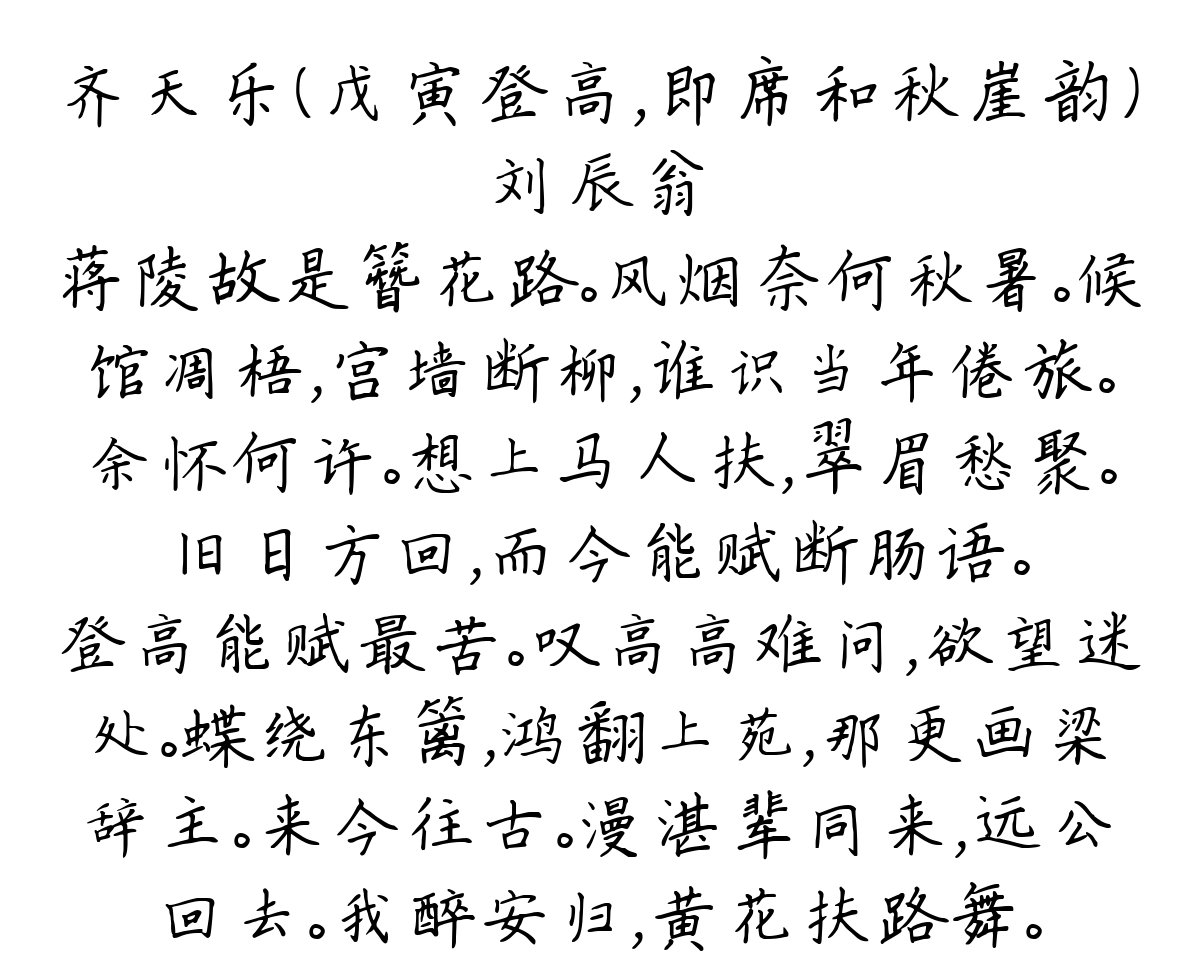 齐天乐(戊寅登高,即席和秋崖韵)
刘辰翁
蒋陵故是簪花路。风烟奈何秋暑。候
馆凋梧,宫墙断柳,谁识当年倦旅。
余怀何许。想上马人扶,翠眉愁聚。
旧日方回,而今能赋断肠语。
登高能赋最苦。叹高高难问,欲望迷
处。蝶绕东篱,鸿翻上苑,那更画梁
辞主。来今往古。漫湛辈同来,远公
回去。我醉安归,黄花扶路舞。